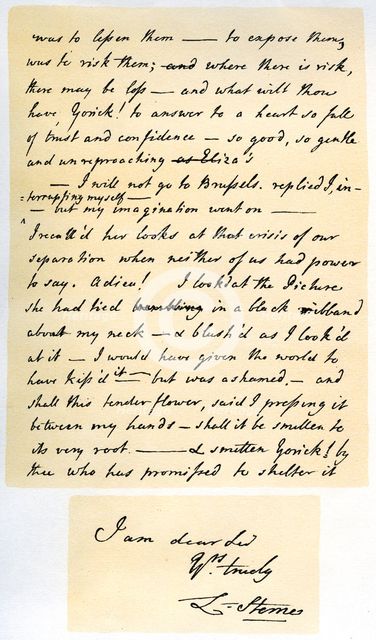 was to lessen them — to expose them,
was to risk them; and where there is risk,
there may be loss — and what wilt thou
have, Yorick! to answer to a heart so full
of trust and confidence — so good, so gentle
and unreproaching as Eliza's
— I will not go to Brussels. replied I, in-
=terrupting myself—
— but my imagination went on —
I recall'd her looks at that crisis of our
separation when neither of us had power
to say. Adieu! I look'd at the Picture
she had tied in a black ribband
about my neck — & blush'd as I look'd
at it — I would have given the world to
have kiss'd it — but was ashamed. — and
shall this tender flower, said I pressing it
between my hands — shall it be smitten to
its very root. — & smitten Yorick! by
thee who has promised to shelter it
I am dear Sir
Yrs truely
L. Sterne